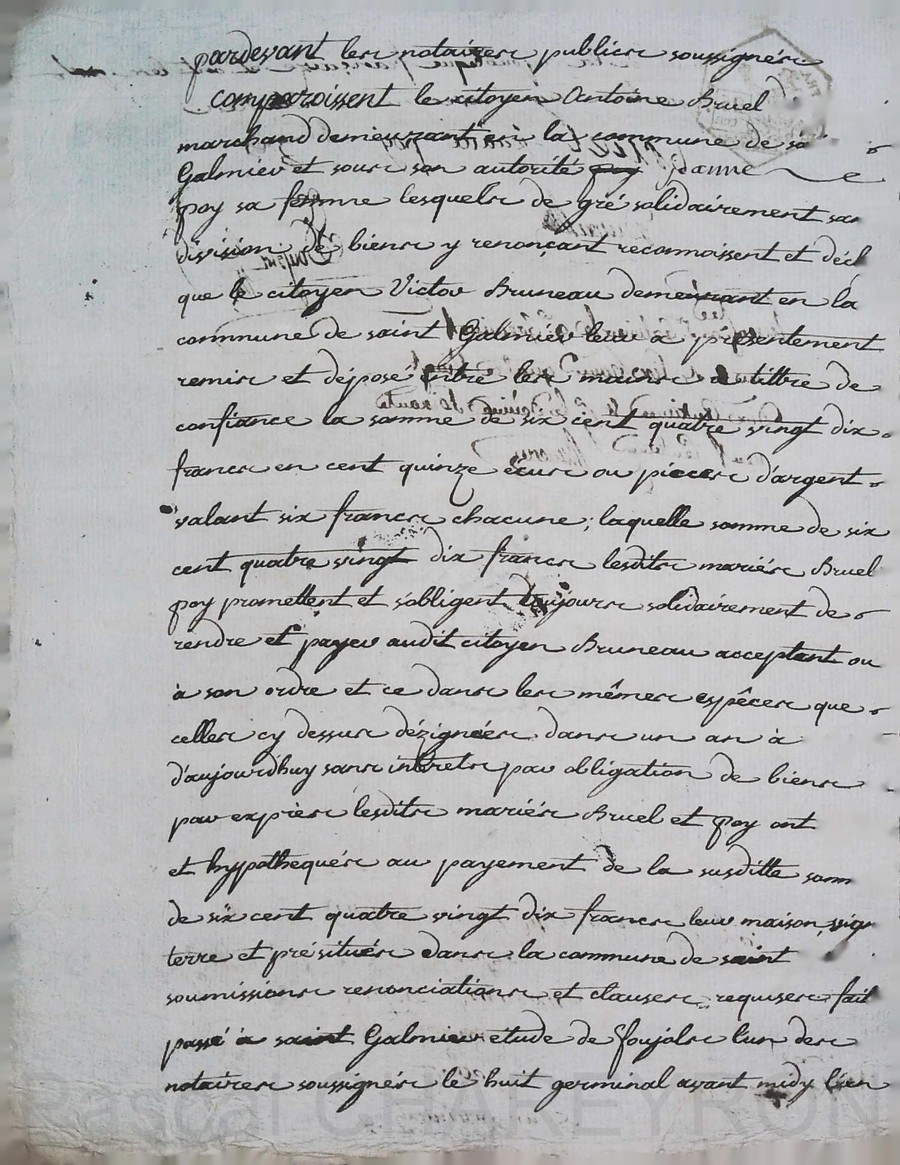 pardevant les notaires publics soussignés
comparoissent le citoyen Antoine Bruel
marchand demeurant en la commune de st
Galmier et sous son autorité Jeanne
poy sa femme lesquels de gré solidairement san
division de biens y renonçant reconnoissent et décl
que le citoyen Victor Bruneau demeurant en la
commune de saint Galmier leur a présentement
remis et déposé entre les mains a tittre de
confiance la somme de six cent quatre vingt dix
francs en cent quinze écus ou pieces d'argent
valant six francs chacune; laquelle somme de six
cent quatre vingt dix francs lesdits mariés Bruel
poy promettent et s'obligent toujours solidairement de
rendre et payer audit citoyen Bruneau acceptant ou
à son ordre et ce dans les mêmes espêces que
celles cy dessus dézignées dans un an à
d'aujourd'huy sans intérets par obligation de biens
par exprès lesdits mariés Bruel et poy ont
et hypothequés au payement de la susditte som
de six cent quatre vingt dix francs leur maison, vign
terre et pré situés dans la commune de saint
soumissions renonciations et clauses requises fait
passé à saint Galmier etude de foujols l'un des
notaires soussignés le huit germinal avant midy l'an
Pascal CHAREYRON